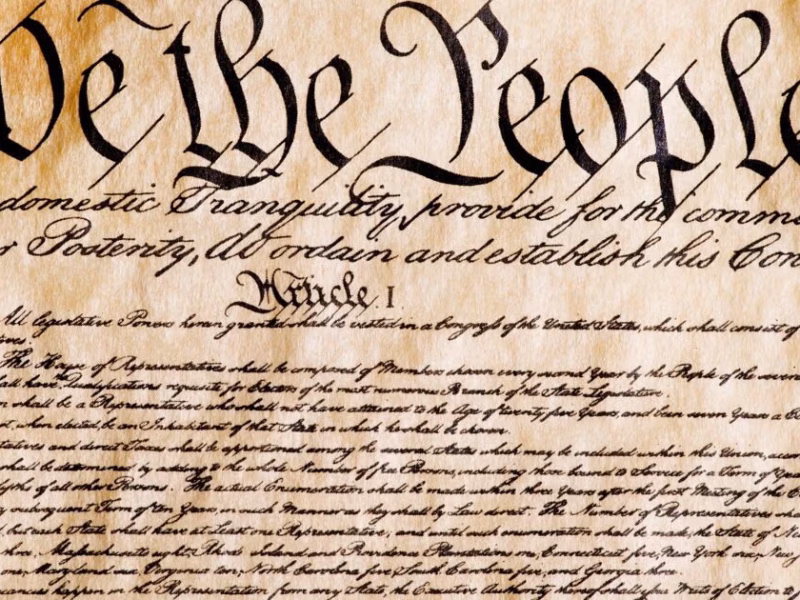 We the People
domestic Tranquility, provide for the common
r Posterity, do ordain and establish this Con
Article. I
All legislative Powers herein granted shall be vested in a Congress of the United States, which shall consist of
ives.
The House of Representatives shall be composed of Members chosen every second Year by the People of the severa
all have the Qualifications requisite for Electors of the most numerous Branch of the State Legislature.
n shall be a Representative who shall not have attained to the Age of twenty five Years, and been seven Years a Ci
ot, when elected, be an Inhabitant of that State in which he shall be chosen.
tatives and direct Taxes shall be apportioned among the several States which may be included within this Union, accor
shall be determined by adding to the whole Number of free Persons, including those bound to Service for a Term of Year
fths of all other Persons. The actual Enumeration shall be made within three Years after the first Meeting of the C
y subsequent Term of ten Years, in such Manner as they shall by Law direct. The Number of Representatives shal
d, but each State shall have at Least one Representative; and until such enumeration shall be made, the State of New
three, Massachusetts eight, Rhode Island and Providence Plantations one, Connecticut five, New York six, New J
one, Maryland six, Virginia ten, North Carolina five, South Carolina five, and Georgia three.
cancies happen in the Representation from any State, the Executive Authority thereof shall issue Writs of Election to f